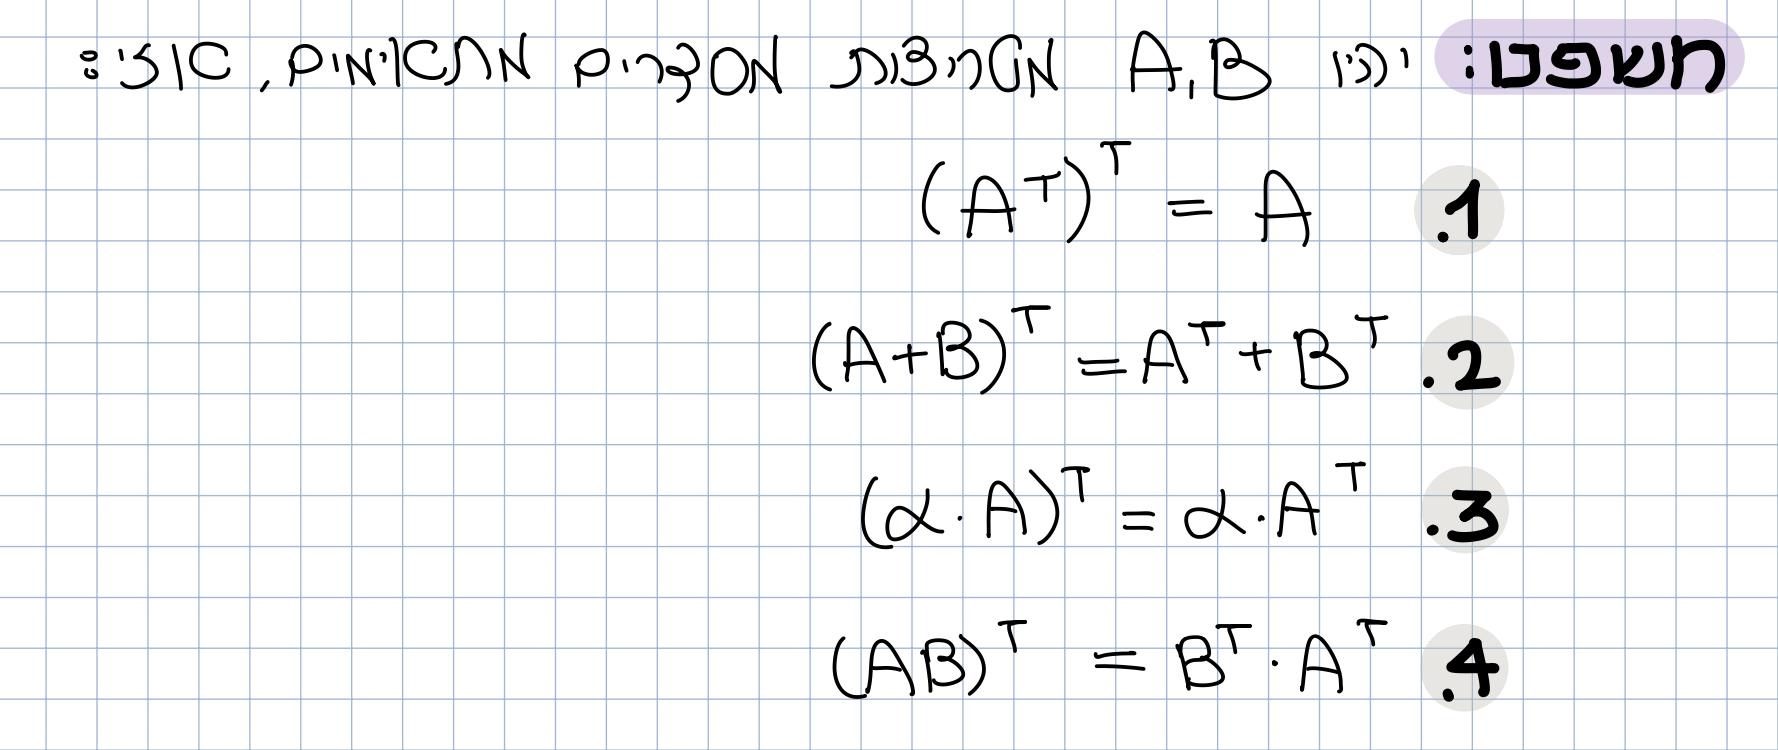 משפט: יהיו A,B מטריצות מסדרים מתאימים, אזי:
1. (Aᵀ)ᵀ = A
2. (A+B)ᵀ = Aᵀ + Bᵀ
3. (α·A)ᵀ = α·Aᵀ
4. (AB)ᵀ = Bᵀ·Aᵀ